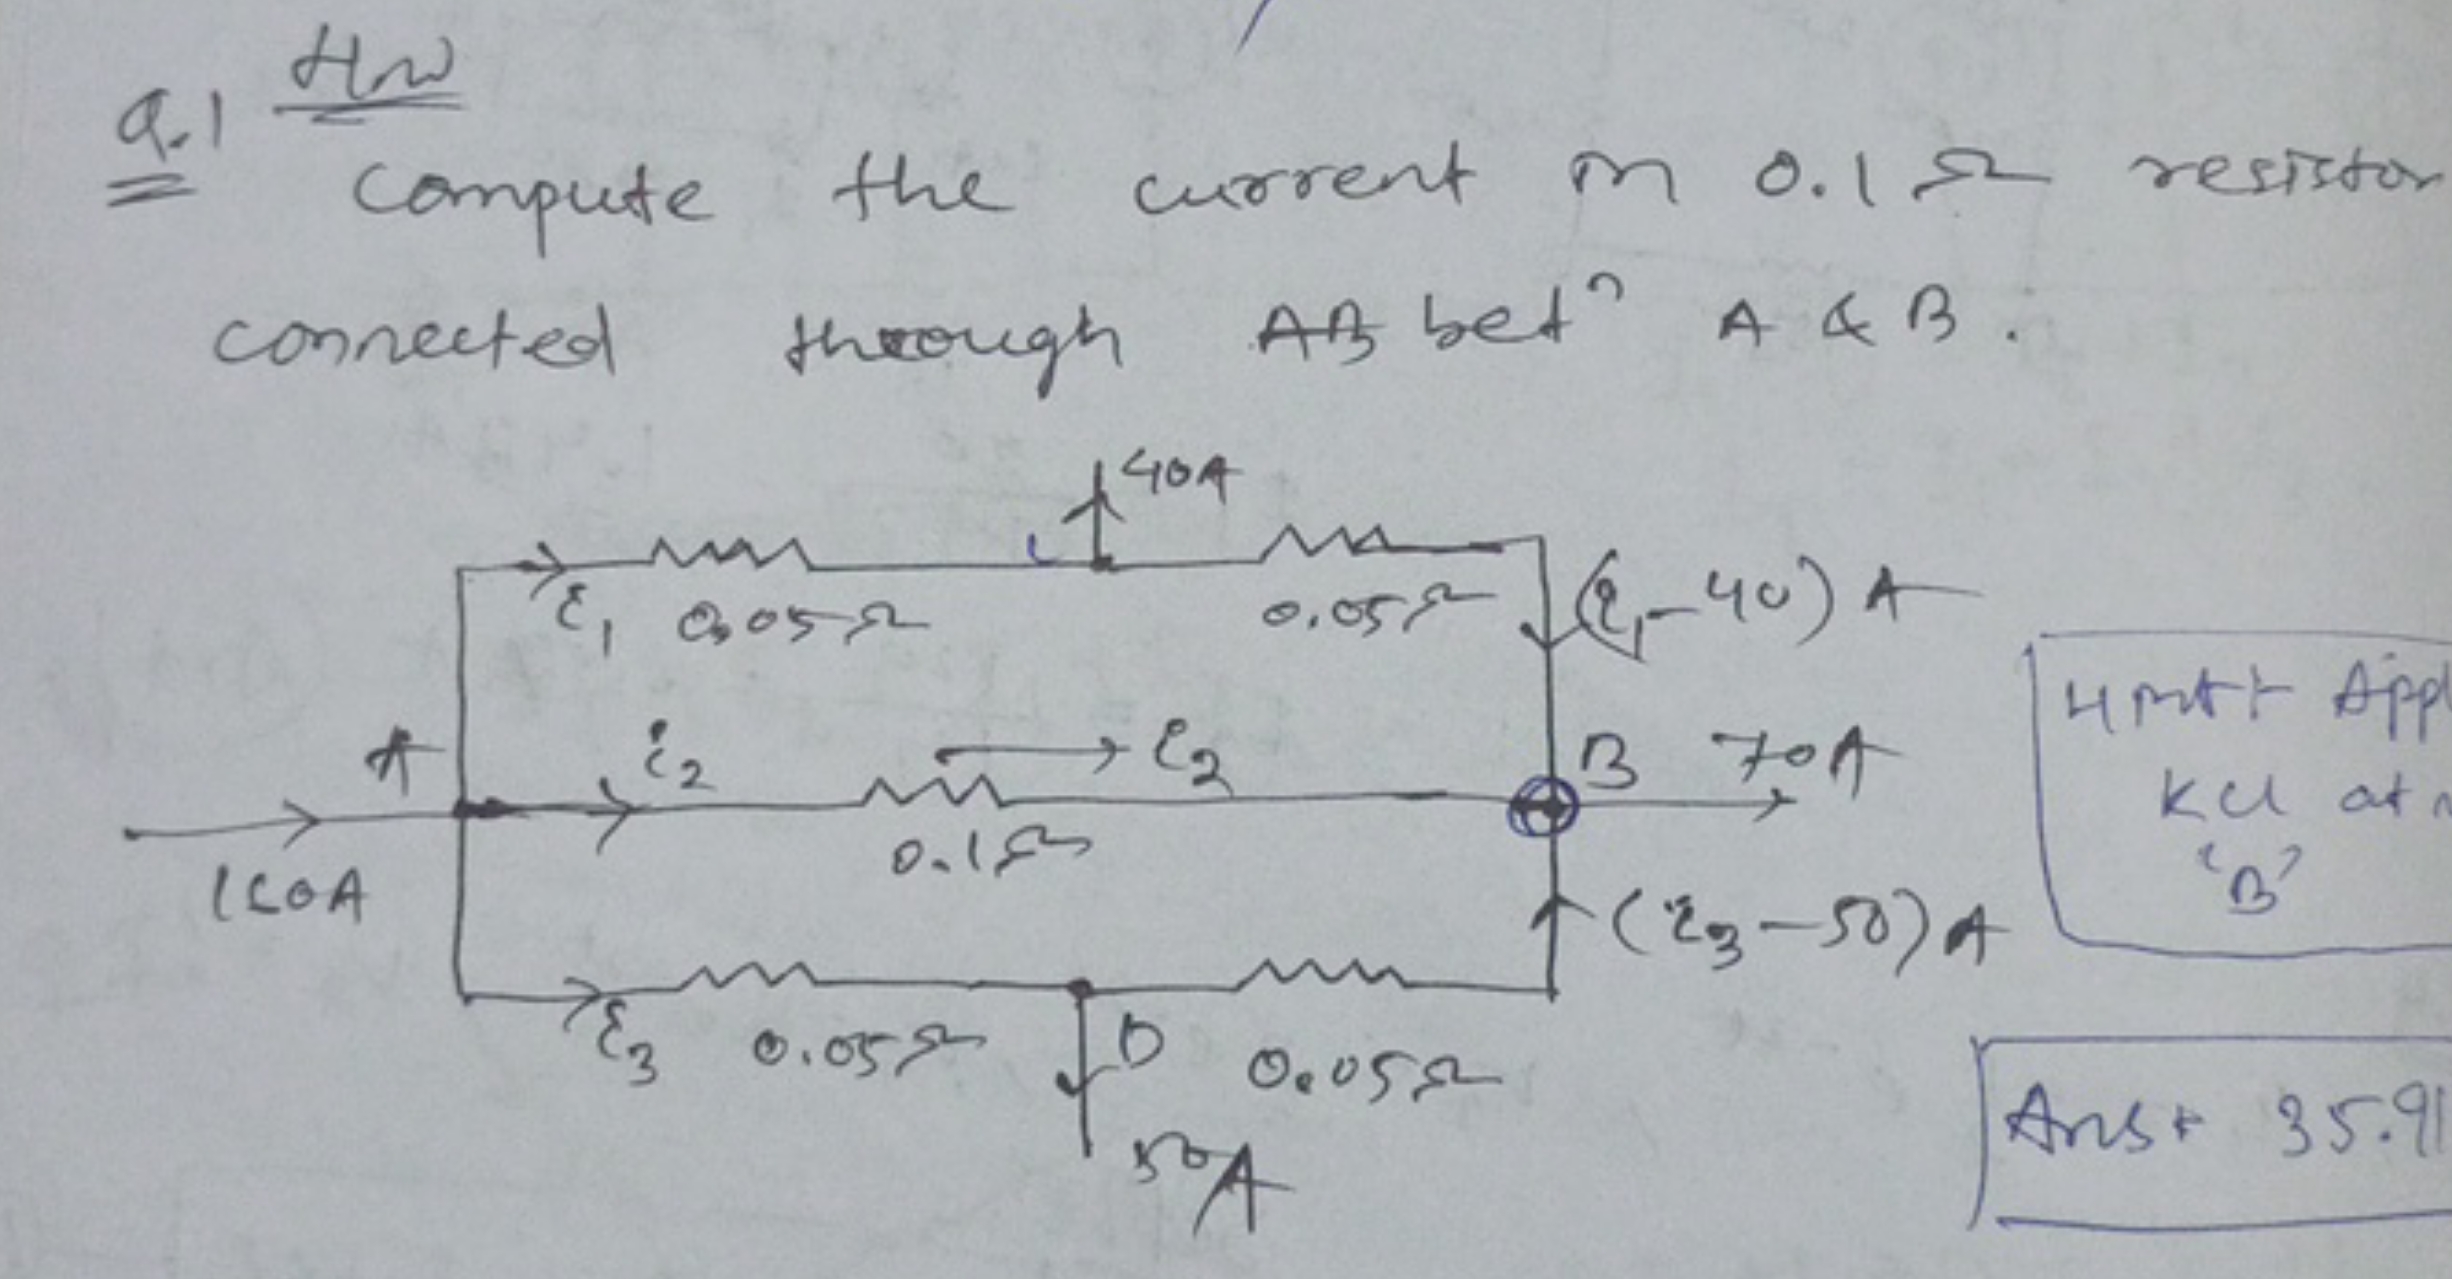 HW
Q.1
Compute the current in 0.1 Ω resistor
connected through AB betⁿ A & B.
40A
i₁ 0.05Ω
0.05Ω
(i₁-40) A
A
i₂
i₂
B 70A
0.1Ω
160A
(i₃-50) A
i₃ 0.05Ω
D
0.05Ω
50A
Hint Appl
KCL at n
'B'
Ans 35.91